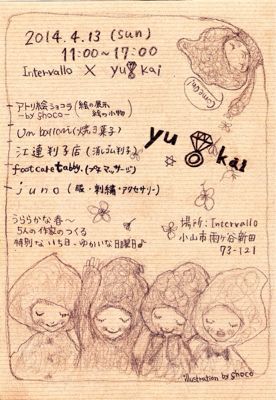 2014.4.13 (sun)
11:00~17:00
Intervallo × yu kai
アトリ絵ショコラ (絵の展示
-by shoco- 絵の小物)
un bonni (焼き菓子)
江連利子店 (消しゴム判子)
footcare tably. (プチマッサージ)
juno (服・刺繍・アクセサリー)
yu kai
うららかな春～
5人の作家のつくる
特別ないち日、ゆかいな日曜日♪
場所:Intervallo
小山市雨ヶ谷新田
73-121
illustration by shoco